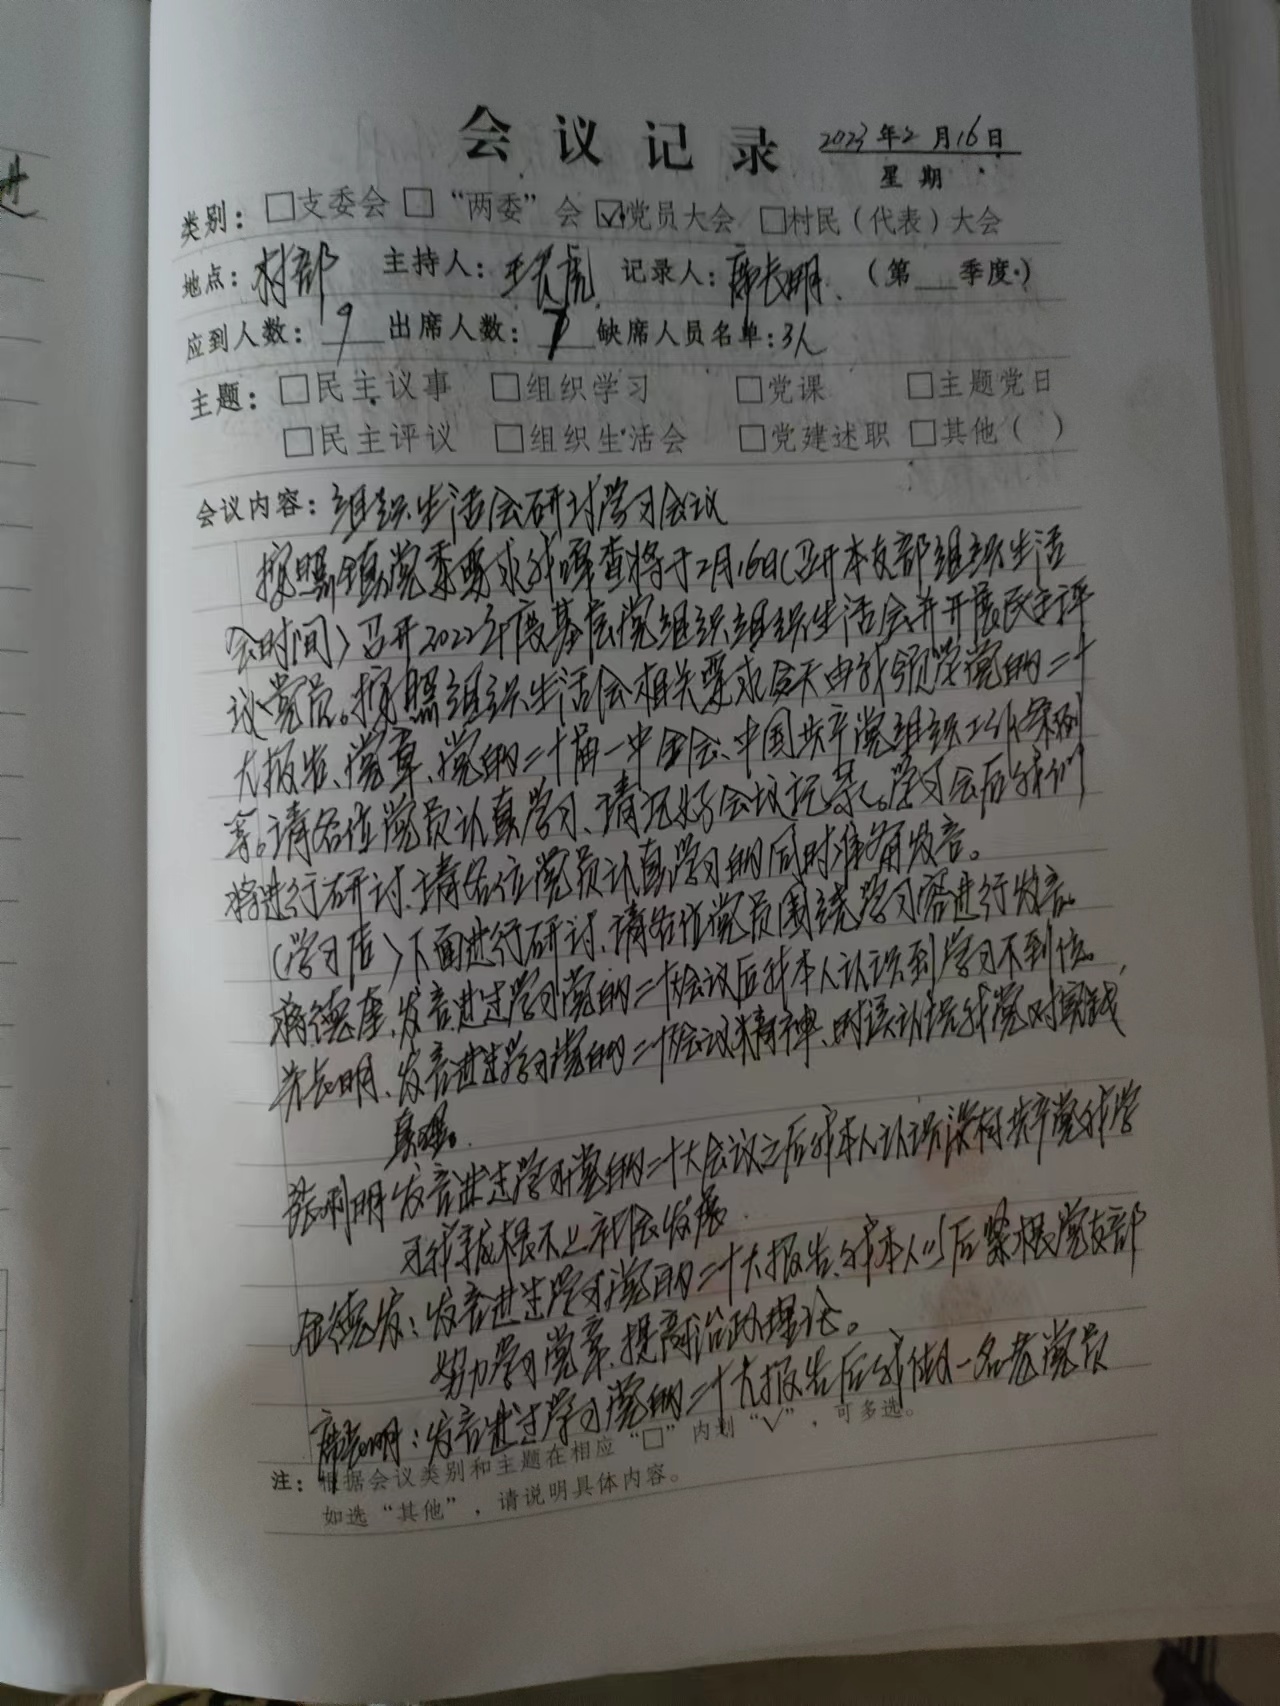 会议记录 2023年2月16日
星期
类别：□支委会 □“两委”会 ☑党员大会 □村民（代表）大会
地点：村部 主持人：王长虎 记录人：席长明 （第 季度）
应到人数：9 出席人数：7 缺席人员名单：3人
主题：□民主议事 □组织学习 □党课 □主题党日
□民主评议 □组织生活会 □党建述职 □其他（ ）
会议内容：组织生活会研讨学习会议
按照镇党委要求我 将于2月16日（召开本支部组织生活
会时间）召开2022年度基层党组织组织生活会并开展民主评
议党员。按照组织生活会相关要求今天由我领学党的二十
大报告、党章、党的二十届一中全会、中国共产党组织工作条例
等。请各位党员认真学习、请记好会议记录。学习会后我们
将进行研讨、请各位党员认真学习的同时准备发言。
（学习后）下面进行研讨、请各位党员围绕学习容进行发言。
蒋德奎、发言进过学习党的二十大会议后我本人认识到学习不到位。
长明、发言进过学习党的二十大会议精神、时 认识我党对
真理。
张利明发言进过学习党的二十大会议之后我本人认识没有共产党我学
习 根不上社会发展
金德发：发言进过学习党的二十大报告、我本人以后紧根党支部
努力学习党章、提高治政理论。
席长明：发言进过学习党的二十大报告后我做一名老党员
注：根据会议类别和主题在相应“□”内划“√”，可多选。
如选“其他”，请说明具体内容。